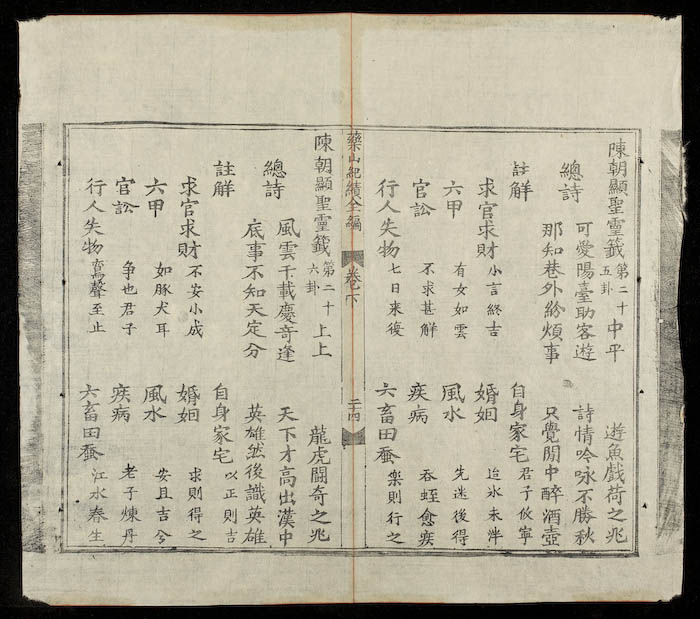 陳朝顯聖靈籤 第二十五卦 中平 遊魚戲荷之兆
總詩 可愛陽臺助客遊 詩情吟咏不勝秋
那知巷外紛煩事 只覺閒中醉酒壺
註解 自身家宅 君子攸寧
求官求財 小言終吉 婚姻 迨氷未泮
六甲 有女如雲 風水 先迷後得
官訟 不求甚解 疾病 吞蛭愈疾
行人失物 七日来復 六畜田蚕 樂則行之
藥山紀績全編 卷下 二十四
陳朝顯聖靈籤 第二十六卦 上上 龍虎鬪奇之兆
總詩 風雲千載慶奇逢 天下才高出漢中
底事不知天定分 英雄然後識英雄
註解 自身家宅 以正則吉
求官求財 不安小成 婚姻 求則得之
六甲 如豚犬耳 風水 安且吉兮
官訟 争也君子 疾病 老子煉丹
行人失物 鸞聲至止 六畜田蚕 江水春生